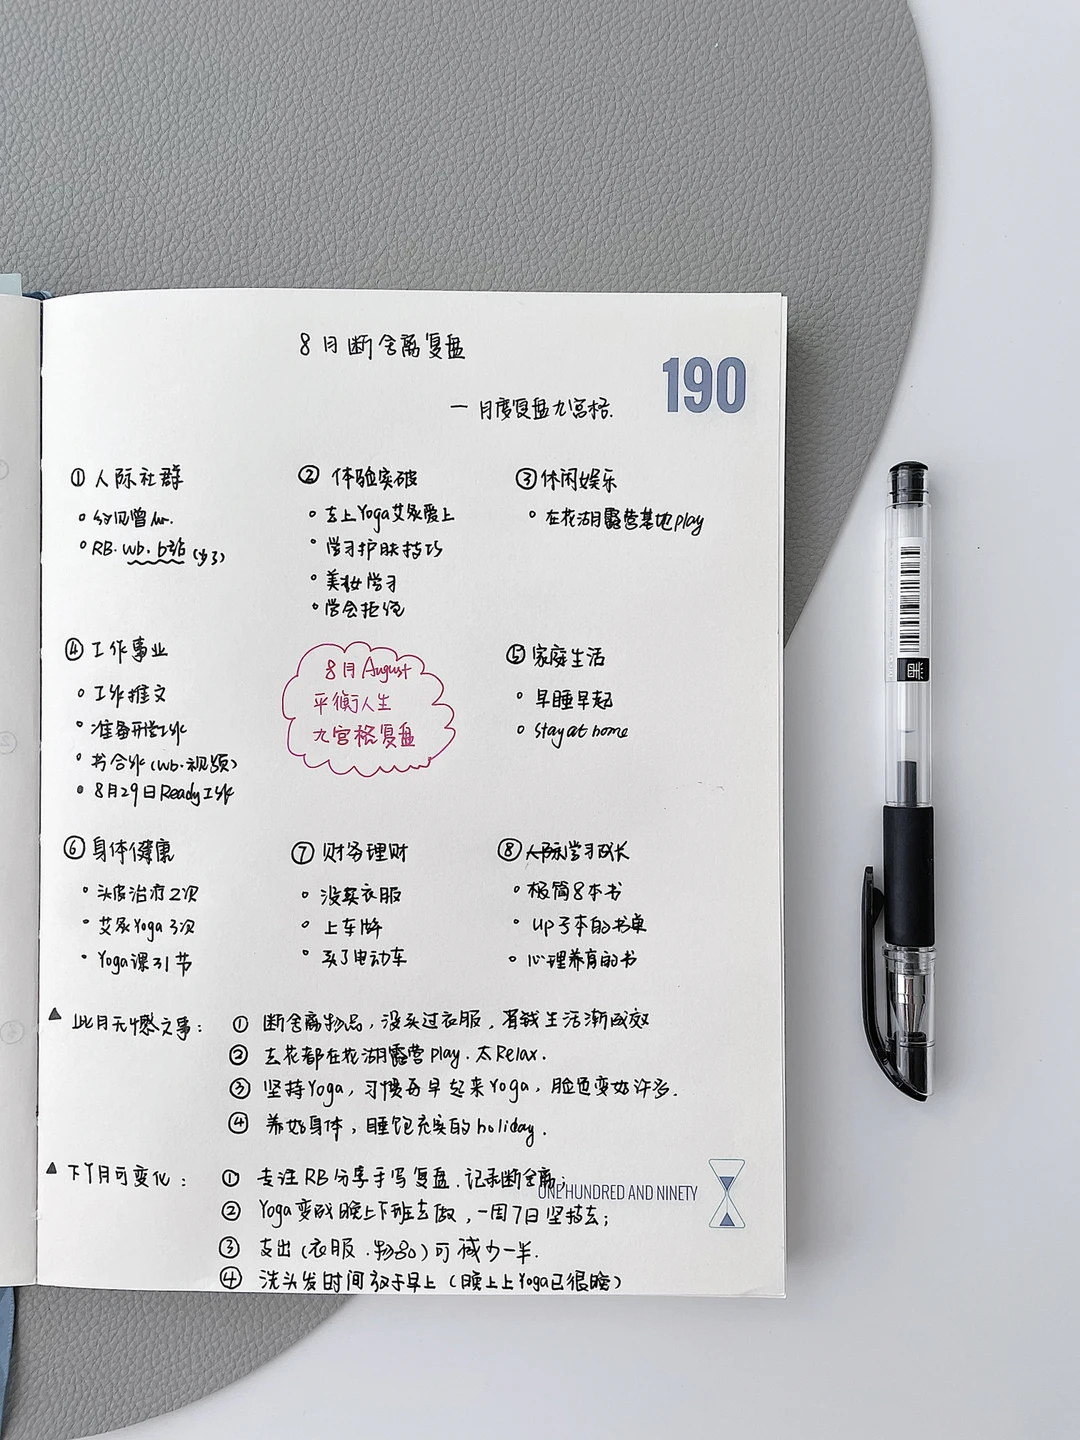 8月断舍离复盘
190
一 月度复盘九宫格.
① 人际社群
RB. wb. b站 (少了)
② 体验突破
去上Yoga艾灸爱上
学习护肤技巧
美妆学习
学会拒绝
③ 休闲娱乐
在花湖露营基地play
④ 工作事业
工作推文
准备开学工作
书合作(wb.视频)
8月29日Ready工作
8月August
平衡人生
九宫格复盘
⑤ 家庭生活
早睡早起
stay at home
⑥ 身体健康
头皮治疗2次
艾灸Yoga 3次
Yoga课31节
⑦ 财务理财
没买衣服
上车牌
买了电动车
⑧ 学习成长
极简8本书
up 5本的书单
心理养育的书
▲ 此月无憾之事:
① 断舍离物品, 没买过衣服, 省钱生活渐成效
② 去花都在花湖露营play. 太Relax.
③ 坚持Yoga, 习惯每早起来Yoga, 脸色变好许多.
④ 养好身体, 睡饱充实的holiday.
▲ 下个月可变化:
① 专注RB分享手写复盘. 记录断舍离;
ONE HUNDRED AND NINETY
② Yoga变成晚上下班去做, 一周7日坚持去;
③ 支出(衣服.物品)可减少一半.
④ 洗头发时间放于早上(晚上上Yoga已很晚)